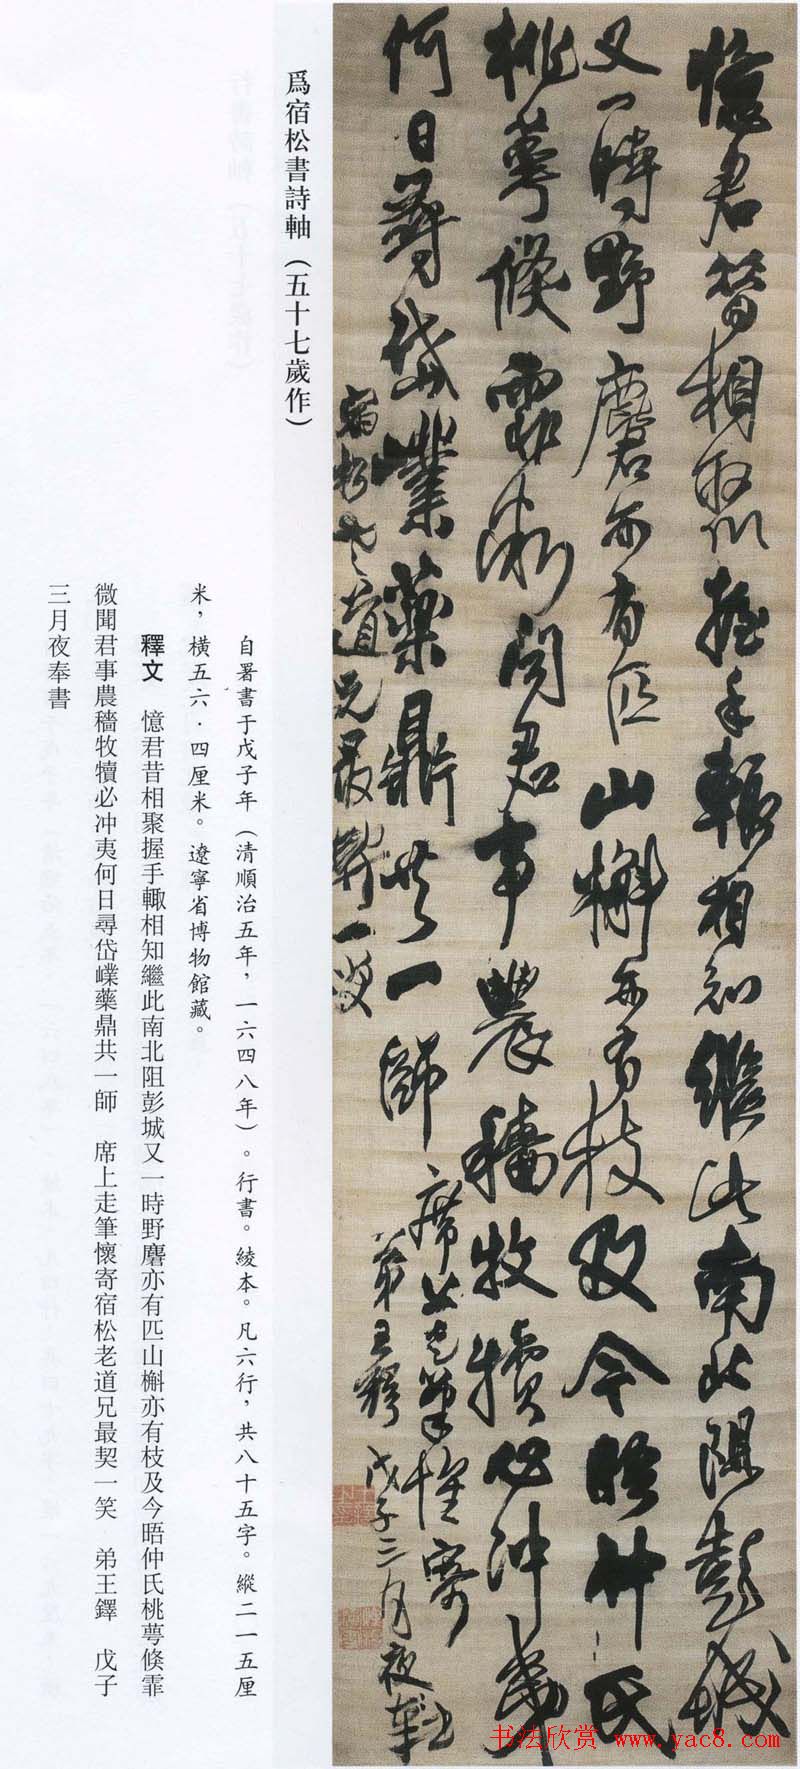 憶君昔相聚握手輙相知繼此南北阻彭城
又一時野麏亦有匹山槲亦有枝及今晤仲氏
桃萼倏霏微聞君事農穡牧犢必冲夷
何日尋岱嶫藥鼎共一師 席上走筆懷寄
宿松老道兄最契一笑 弟王鐸 戊子三月夜奉書
爲宿松書詩軸（五十七歲作）
自署書于戊子年（清順治五年，一六四八年）。行書。綾本。凡六行，共八十五字。縱二一五厘
米，橫五六·四厘米。遼寧省博物館藏。
釋文 憶君昔相聚握手輙相知繼此南北阻彭城又一時野麏亦有匹山槲亦有枝及今晤仲氏桃萼倏霏
微聞君事農穡牧犢必冲夷何日尋岱嶫藥鼎共一師 席上走筆懷寄宿松老道兄最契一笑 弟王鐸 戊子
三月夜奉書
书法欣赏 www.yac8.com